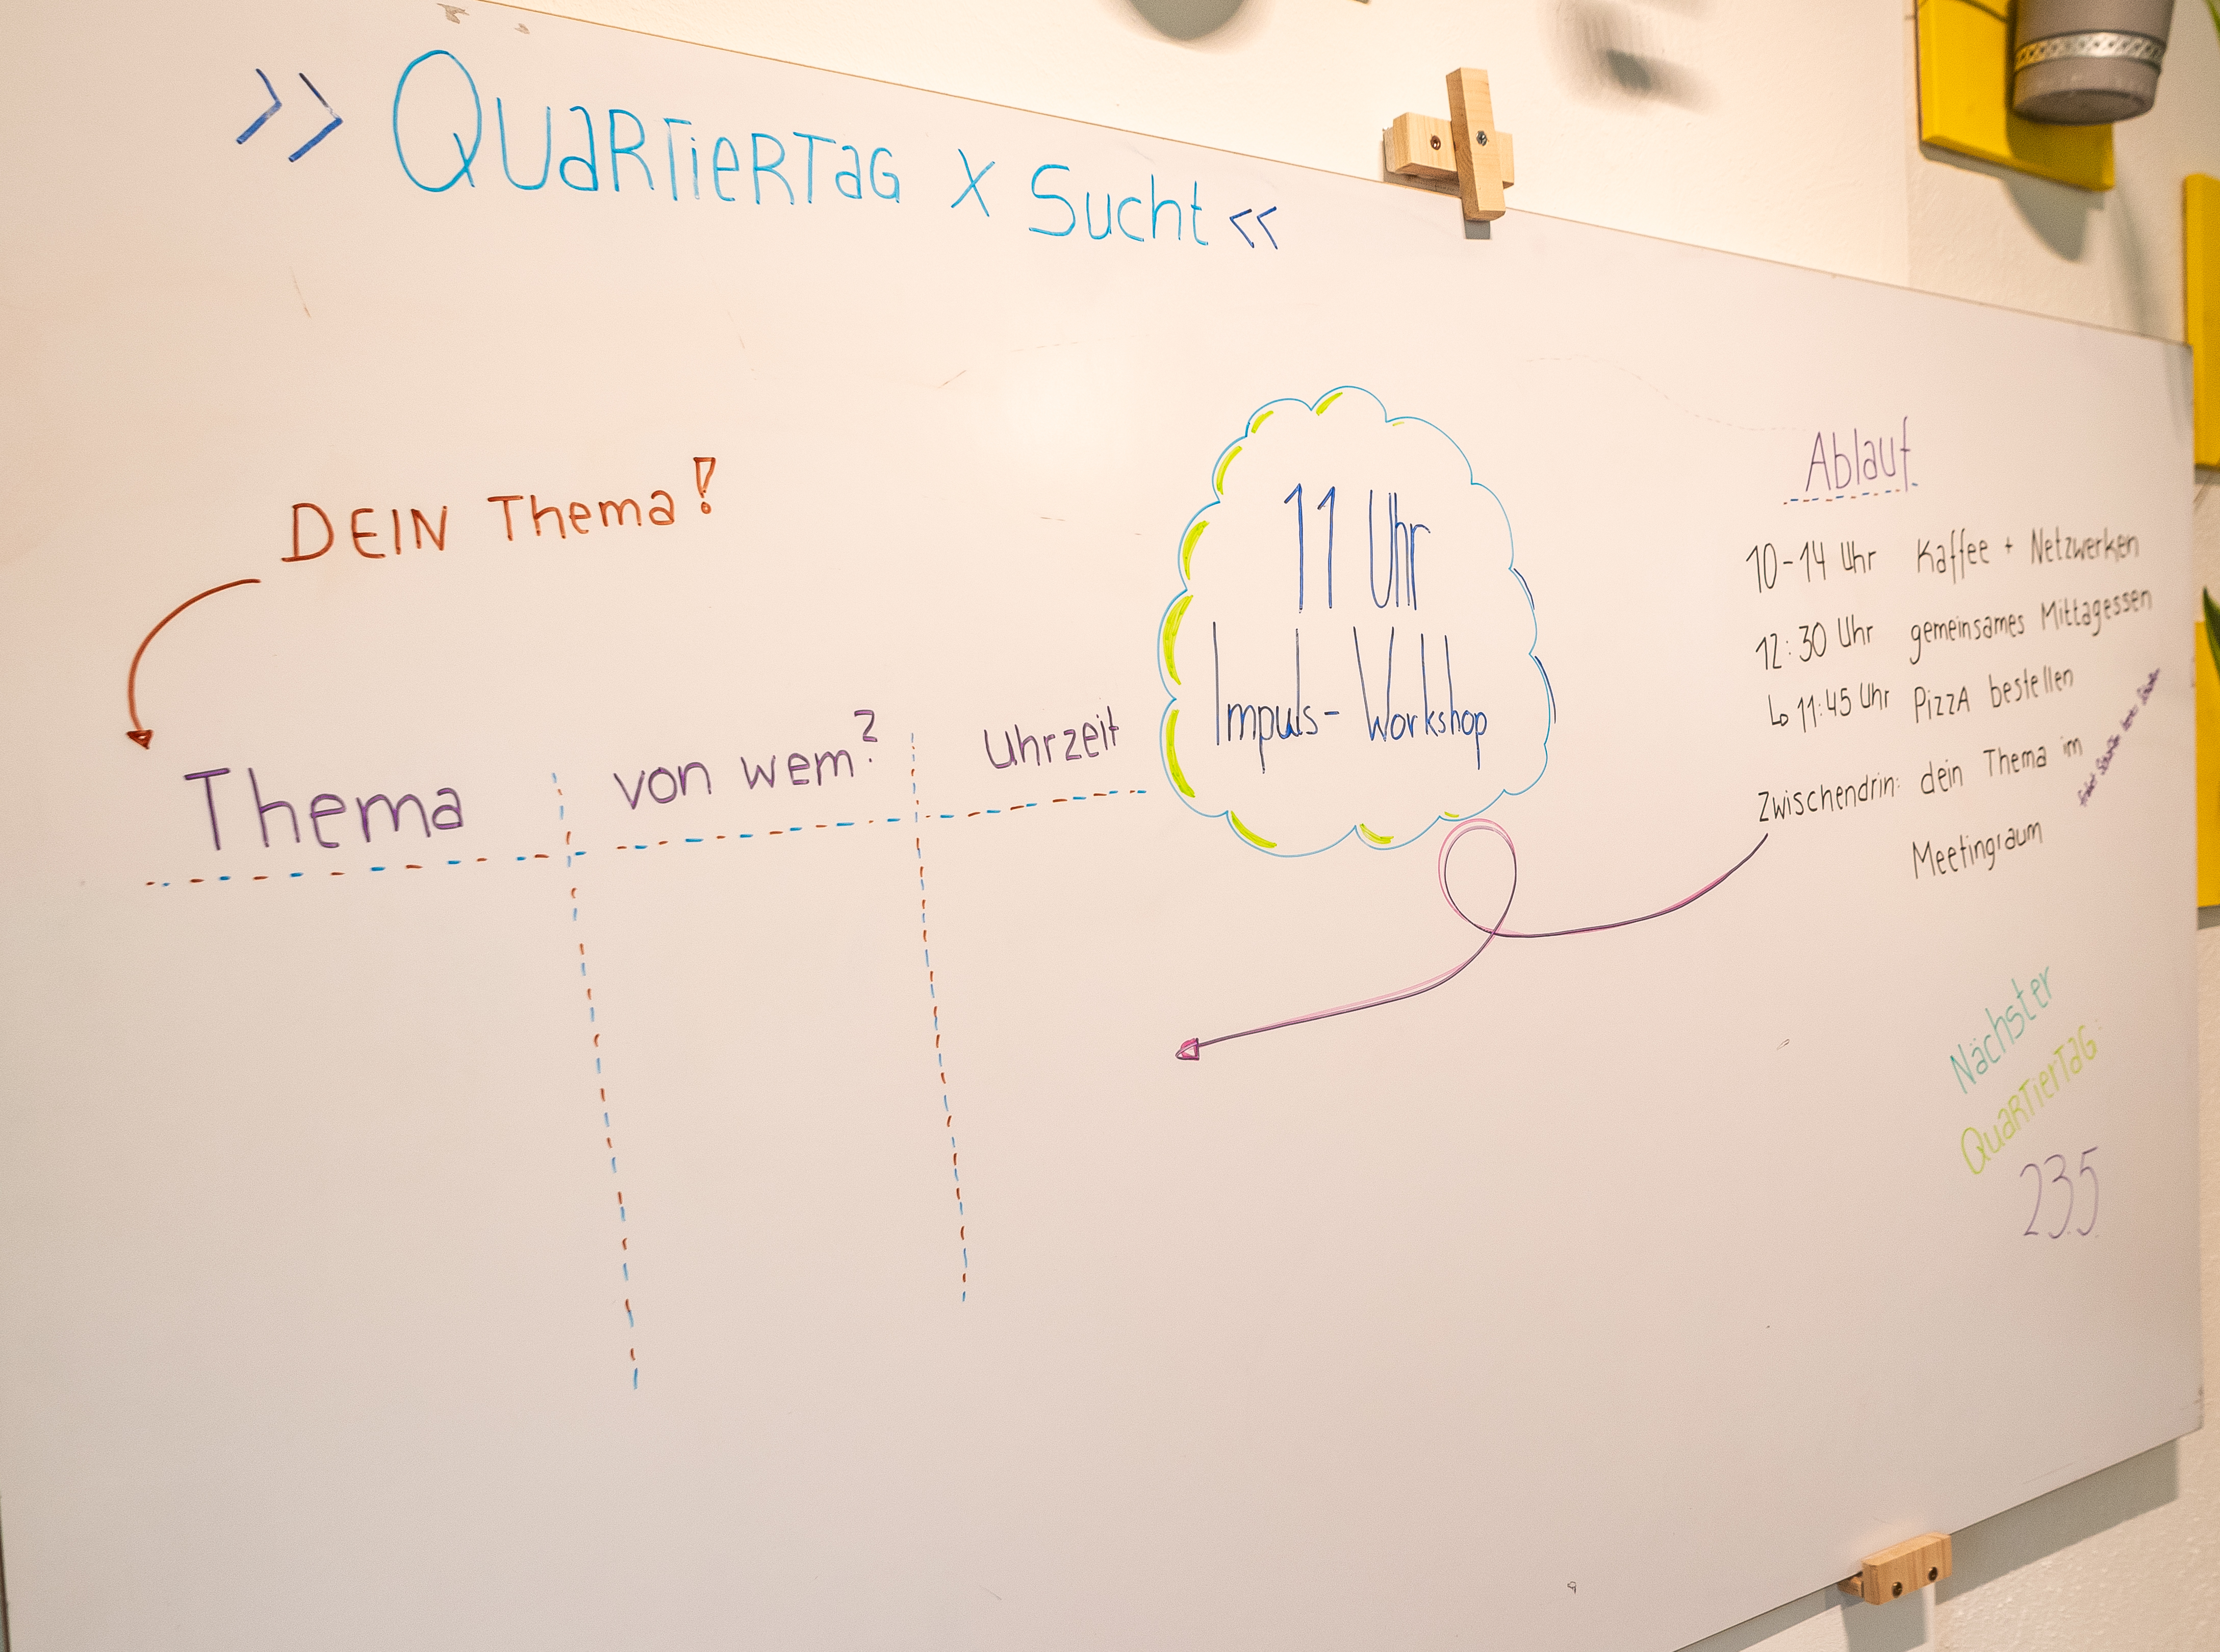 >> QuaRTieRTaG x Sucht <<
DEIN Thema!
Thema von wem? Uhrzeit
11 Uhr
Impuls-Workshop
Ablauf
10-14 Uhr Kaffee + Netzwerken
12:30 Uhr gemeinsames Mittagessen
↳ 11:45 Uhr PizzA bestellen
Zwischendrin: dein Thema im
Meetingraum
Nächster
QuaRTierTaG:
23.5.